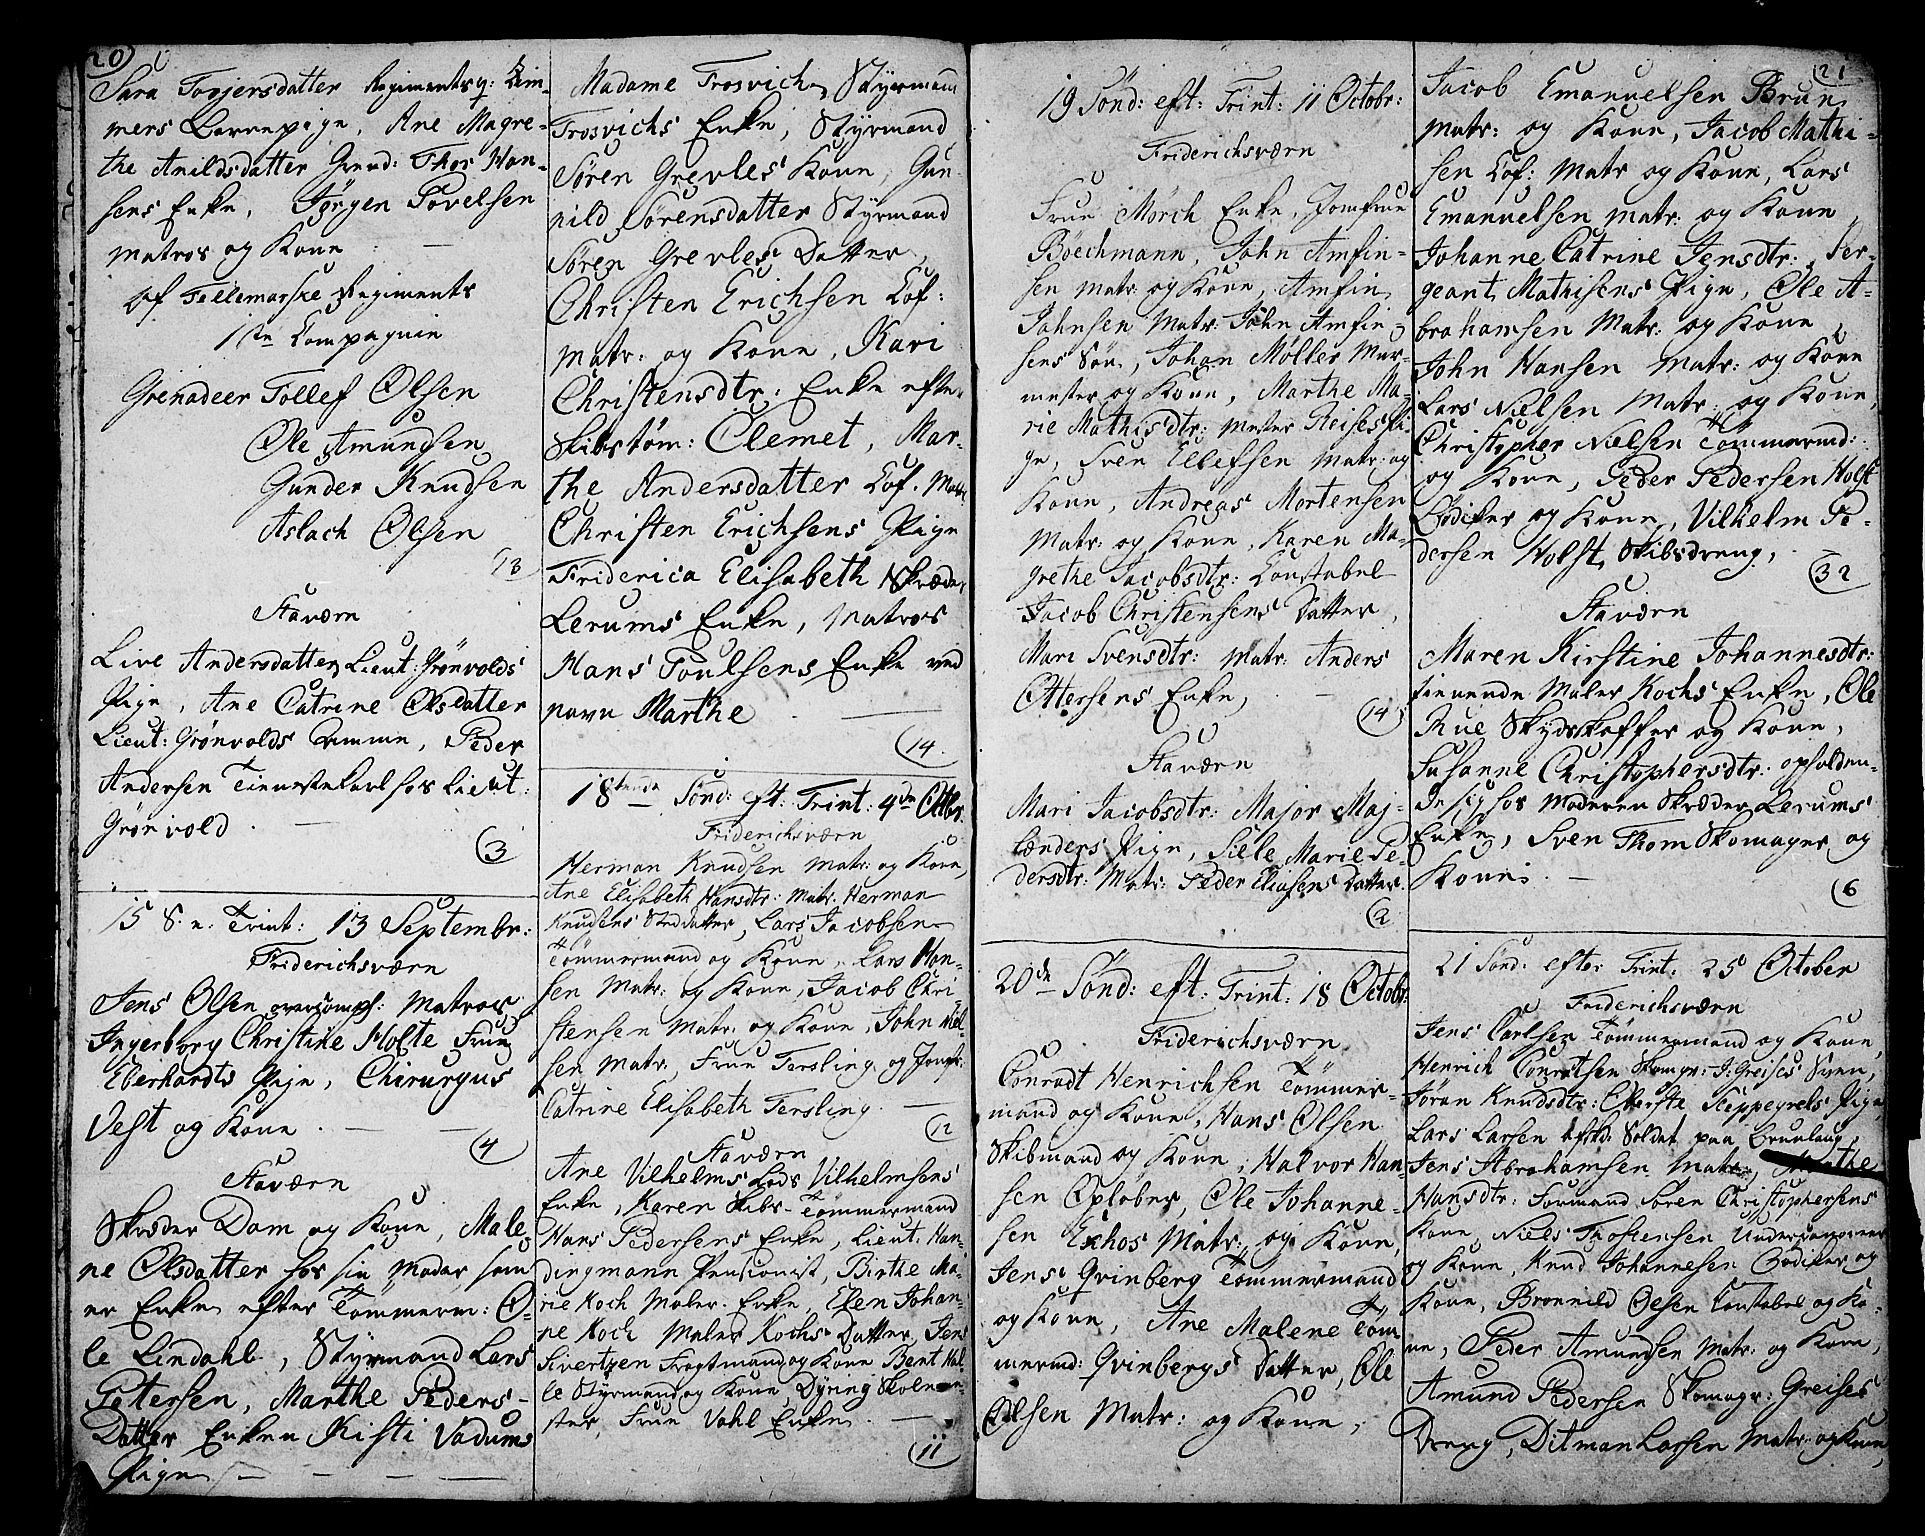 20
Sara Torjersdatter Regimentsq: Lim-
mers Barnepige, Ane Magre-
the Arildsdatter Gevd: Thor Han-
sens Enke, Jörgen Povelsen
matros og Kone
af Tellemarske Regiments
1ste Compagnie
Grenadeer Tollef Olsen
Ole Amundsen
Gunder Knudsen
Aslach Olsen
13
Staværn
Live Andersdatter Lieut: Grönvolds
Pige, Ane Catrine Olsdatter
Lieut: Grönvolds Amme, Peder
Andersen Tienestekarl hos Lieut:
Grönvold
3
15 S. e. Trint: 13 Septembr:
Friderichsværn
Jens Olsen overcompl: Matros,
Ingerborg Christine Holte Frue
Eberhardts Pige, Chirurgus
Vest og Kone
4
Staværn
Skreder Dam og Kone, Male-
ne Olsdatter hos sin Moder som
er Enke efter Tömmerm: O-
le Lindahl, Styrmand Lars
Petersen, Marthe Peders-
Datter Enken Kisti Vadums
Pige
Madame Trosvich, Styrmand
Trosvichs Enke, Styrmand
Sören Grevles Kone, Gun-
nild Sörensdatter Styrmand
Sören Grevles Datter,
Christen Erichsen Lof:
Matr: og Kone, Kari
Christensdtr: Enke efter
Skibstöm: Clemet, Mar-
the Andersdatter Lof. Matr
Christen Erichsens Pige
Friderica Elisabeth Skræder
Lerums Enke, Matros
Hans Poulsens Enke ved
navn Marthe
14
18tende Sönd: eft: Trint: 4de Octbr.
Friderichsværn
Herman Knudsen Matr: og Kone,
Ane Elisabeth Hansdtr: Matr: Herman
Knudsens Steddatter, Lars Jacobsen
Tömmermand og Kone, Lars Han-
sen Matr: og Kone, Jacob Chri-
stensen Matr: og Kone, John Niel-
sen Matr: Frue Tersling og Jomfr:
Catrine Elisabeth Tersling
12
Staværn
Ane Vilhelms Lods Vilhelmsens
Enke, Karen Skibs-Tömmermand
Hans Pedersens Enke, Lieut. Han-
dingmann Pensionist, Birthe Ma-
rie Koch Maler Enke, Elen Johan-
ne Koch Maler Kochs Datter, Jens
Sivertzen Fragtmand og Kone Bent Hal-
le Styrmand og Kone, Dyring Skolme-
ster, Frue Vahl Enke
11
19 Sönd: eft: Trint: 11 Octobr:
Friderichsværn
Frue Mörch Enke, Jomfrue
Böechmann, John Amfin-
sen Matr: og Kone, Amfin
Johnsen Matr: John Amfin-
sens Sön, Johan Möller Mur-
mester og Kone, Marthe Ma-
rie Mathisdtr: Mester Reises Pi-
ge, Sven Ellefsen Matr: og
Kone, Andreas Mortensen
Matr: og Kone, Karen Ma-
grethe Jacobsdtr: Constabel
Jacob Christensens Datter,
Mari Svensdtr: Matr: Anders
Ottersens Enke,
14
Staværn
Mari Jacobsdtr: Major Maj-
lænders Pige, Siele Marie Pe-
dersdtr: Matr: Peder Eliasens Datter
2
20de Sönd: eft: Trint: 18 Octobr:
Friderichsværn
Conradt Henrichsen Tömmer-
mand og Kone, Hans Olsen
Skibmand og Kone, Halvor Han-
sen Oplöber, Ole Johanne-
sen Exhos Matr: og Kone,
Jens Qvinberg Tömmermand
og Kone, Ane Malene Töm-
mermd: Qvinbergs Datter, Ole
Olsen Matr: og Kone,
21
Jacob Emanuelsen Brun
Matr: og Kone, Jacob Mathi-
sen Lof: Matr og Kone, Lars
Emanuelsen Matr: og Kone,
Johanne Catrine Jensdtr: Ser-
geant Mathisens Pige, Ole A-
brahamsen Matr: og Kone
John Hansen Matr: og Kone
Lars Nielsen Matr: og Kone,
Christopher Nielsen Tömmermd:
og Kone, Peder Pedersen Holst
Bödiker og Kone, Vilhelm Pe-
dersen Holst, Skibsdreng,
32
Staværn
Maren Kirstine Johannesdtr:
tienende Maler Kochs Enke, Ole
Rue Skydskaffer og Kone,
Susanne Christophersdtr: opholden-
de sig hos Moderen Skræder Lerums
Enke, Sven Thom Skomager og
Kone
6
21 Sönd: efter Trint: 25 October
Friderichsværn
Jens Carlsen Tömmermand og Kone,
Henrich Conratsen Skomgr: J: Greises Svend,
Jöran Knudsdtr: Oberste Steppegrels Pige
Lars Larsen afskd: Soldat paa Brunlaug
Jens Abrahamsen Matr:, Marthe
Hansdtr: Formand Sören Christophersens
Kone, Niels Thostensen Underkanoneer
og Kone, Knud Johannesen Bödiker og
Kone, Bronnild Olsen Constabel og Ko-
ne, Peder Amundsen Matr: og Kone,
Amund Pedersen Skomagr: Greises
Dreng, Ditman Larsen Matr: og Kone,